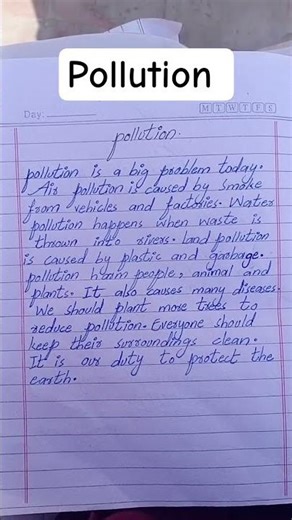 Pollution
Day:
M T W T F S
pollution.
pollution is a big problem today.
Air pollution is caused by smoke
from vehicles and factories. Water
pollution happens when waste is
thrown into rivers. land pollution
is caused by plastic and garbage.
pollution harm people, animal and
plants. It also causes many diseases.
We should plant more trees to
reduce pollution. Everyone should
keep their surroundings clean.
It is our duty to protect the
earth.